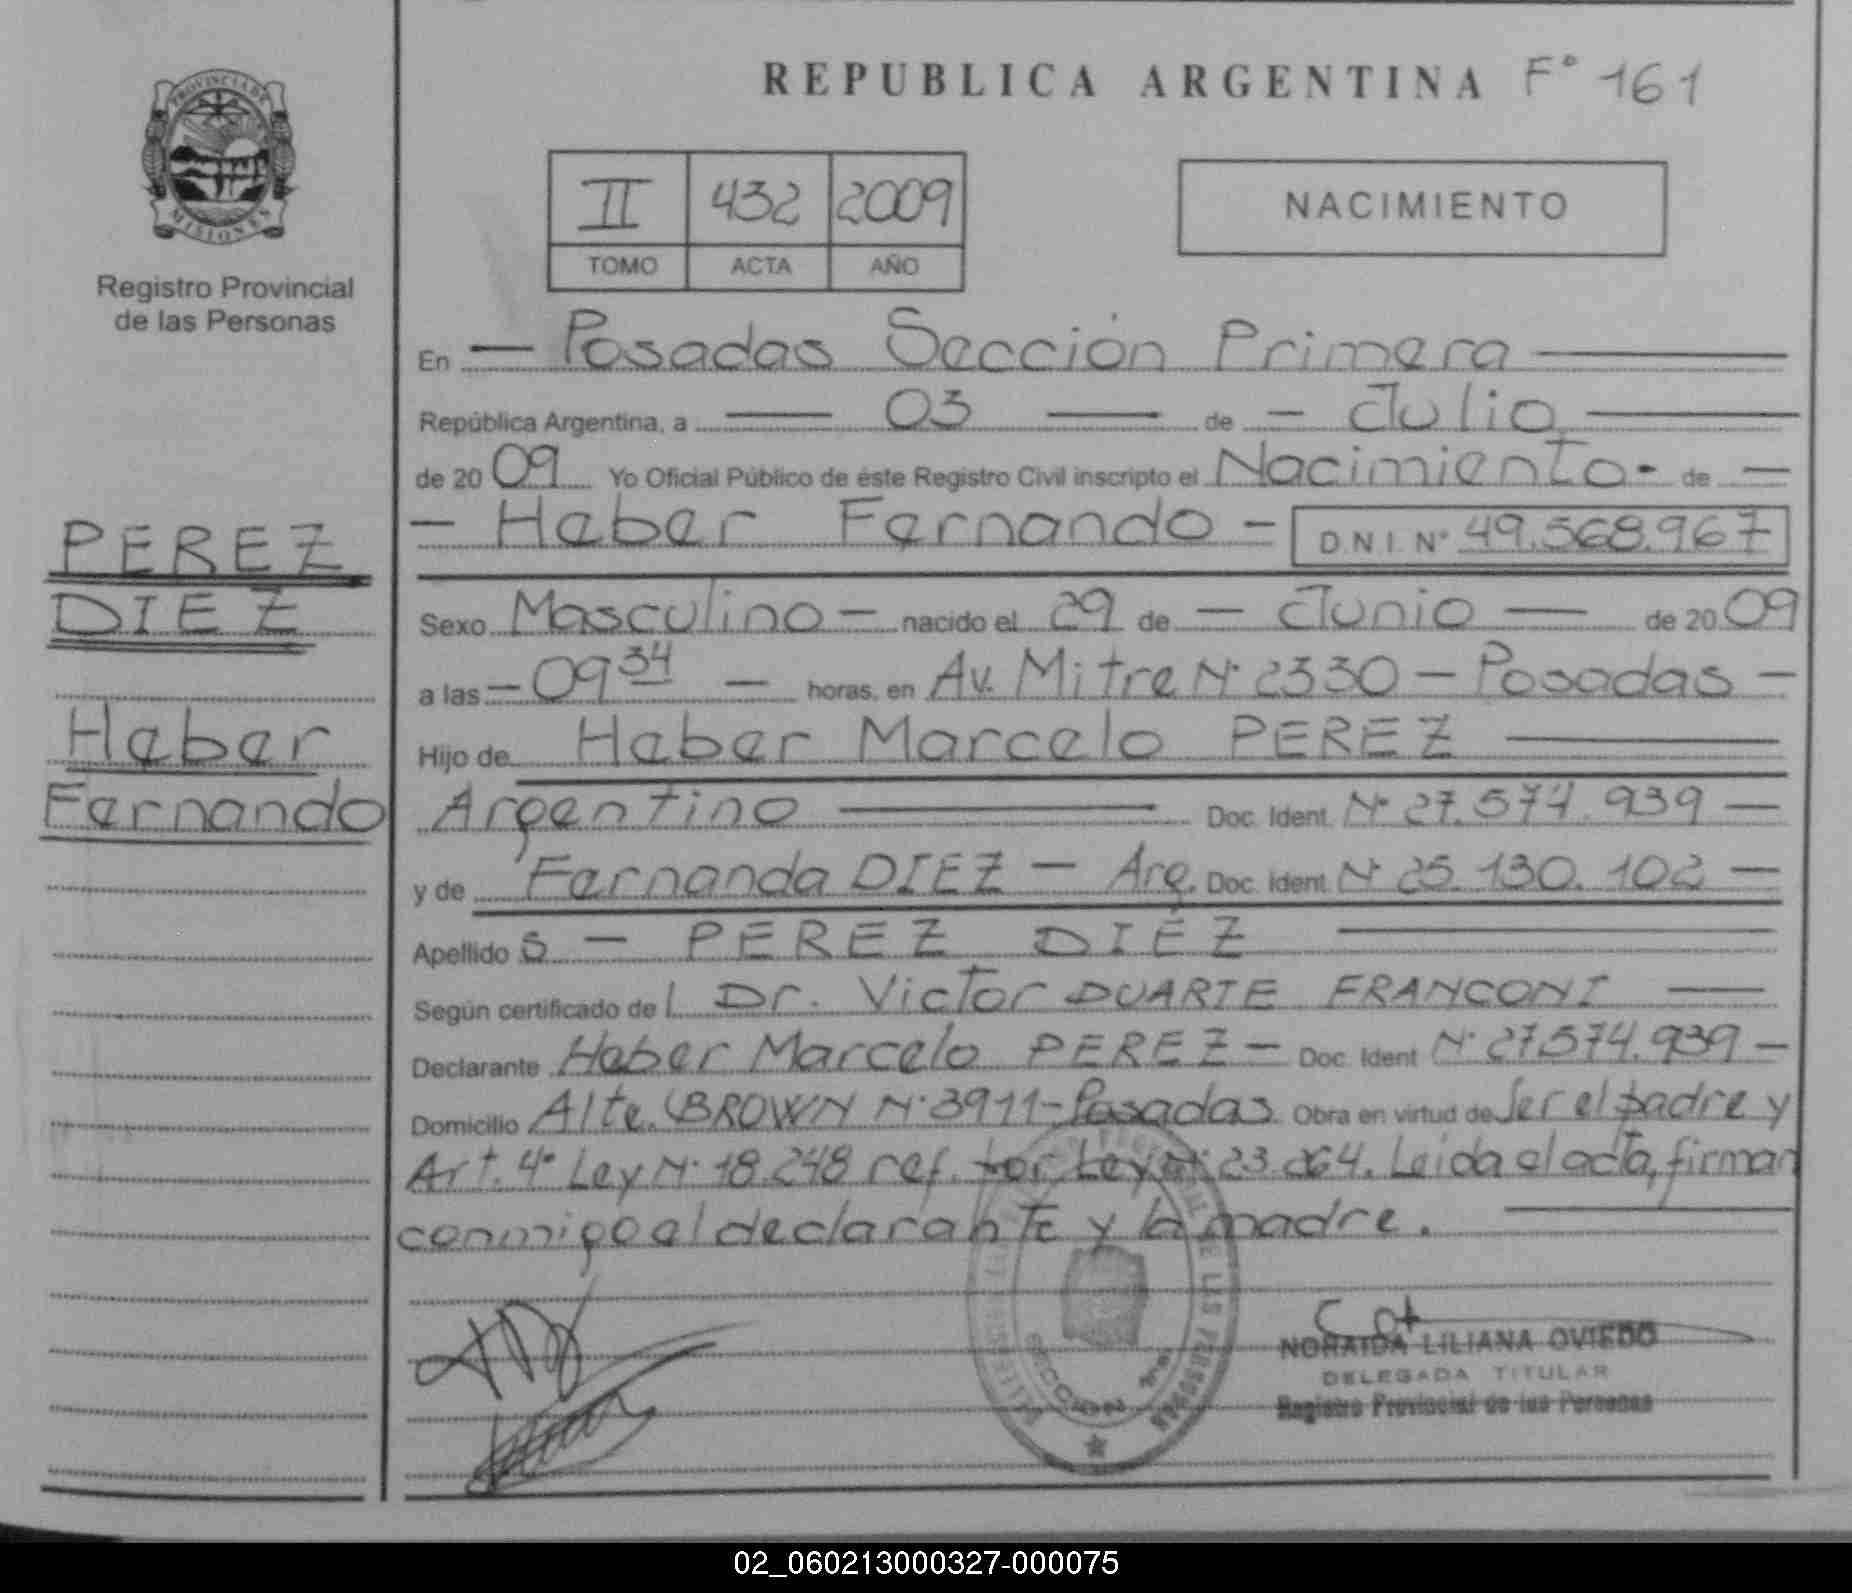 REPUBLICA ARGENTINA F° 161
PROVINCIA DE
MISIONES
Registro Provincial
de las Personas
II 432 2009
TOMO ACTA AÑO
NACIMIENTO
PEREZ
DIEZ
Heber
Fernando
En — Posadas Sección Primera —
República Argentina, a — 03 — de — Julio —
de 20 09 Yo Oficial Público de éste Registro Civil inscripto el Nacimiento - de —
— Heber Fernando — D.N.I. N° 49.568.967
Sexo Masculino — nacido el 29 de — Junio — de 20 09
a las — 09 34 — horas, en Av. Mitre N° 2330 — Posadas —
Hijo de Heber Marcelo PEREZ —
Argentino — Doc. Ident. N° 27.574.939 —
y de Fernanda DIEZ — Arg. Doc. Ident. N° 25.130.102 —
Apellido s — PEREZ DIEZ —
Según certificado de l Dr. Victor DUARTE FRANCONI —
Declarante Heber Marcelo PEREZ — Doc. Ident N° 27.574.939 —
Domicilio Alte. BROWN N° 3911 - Posadas Obra en virtud de Ser el padre y
Art. 4° Ley N° 18.248 ref. por Ley N° 23.264. Leida el acta, firman
conmigo el declarante y la madre. —
NORAIDA LILIANA OVIEDO
DELEGADA TITULAR
Registro Provincial de las Personas
02_060213000327-000075